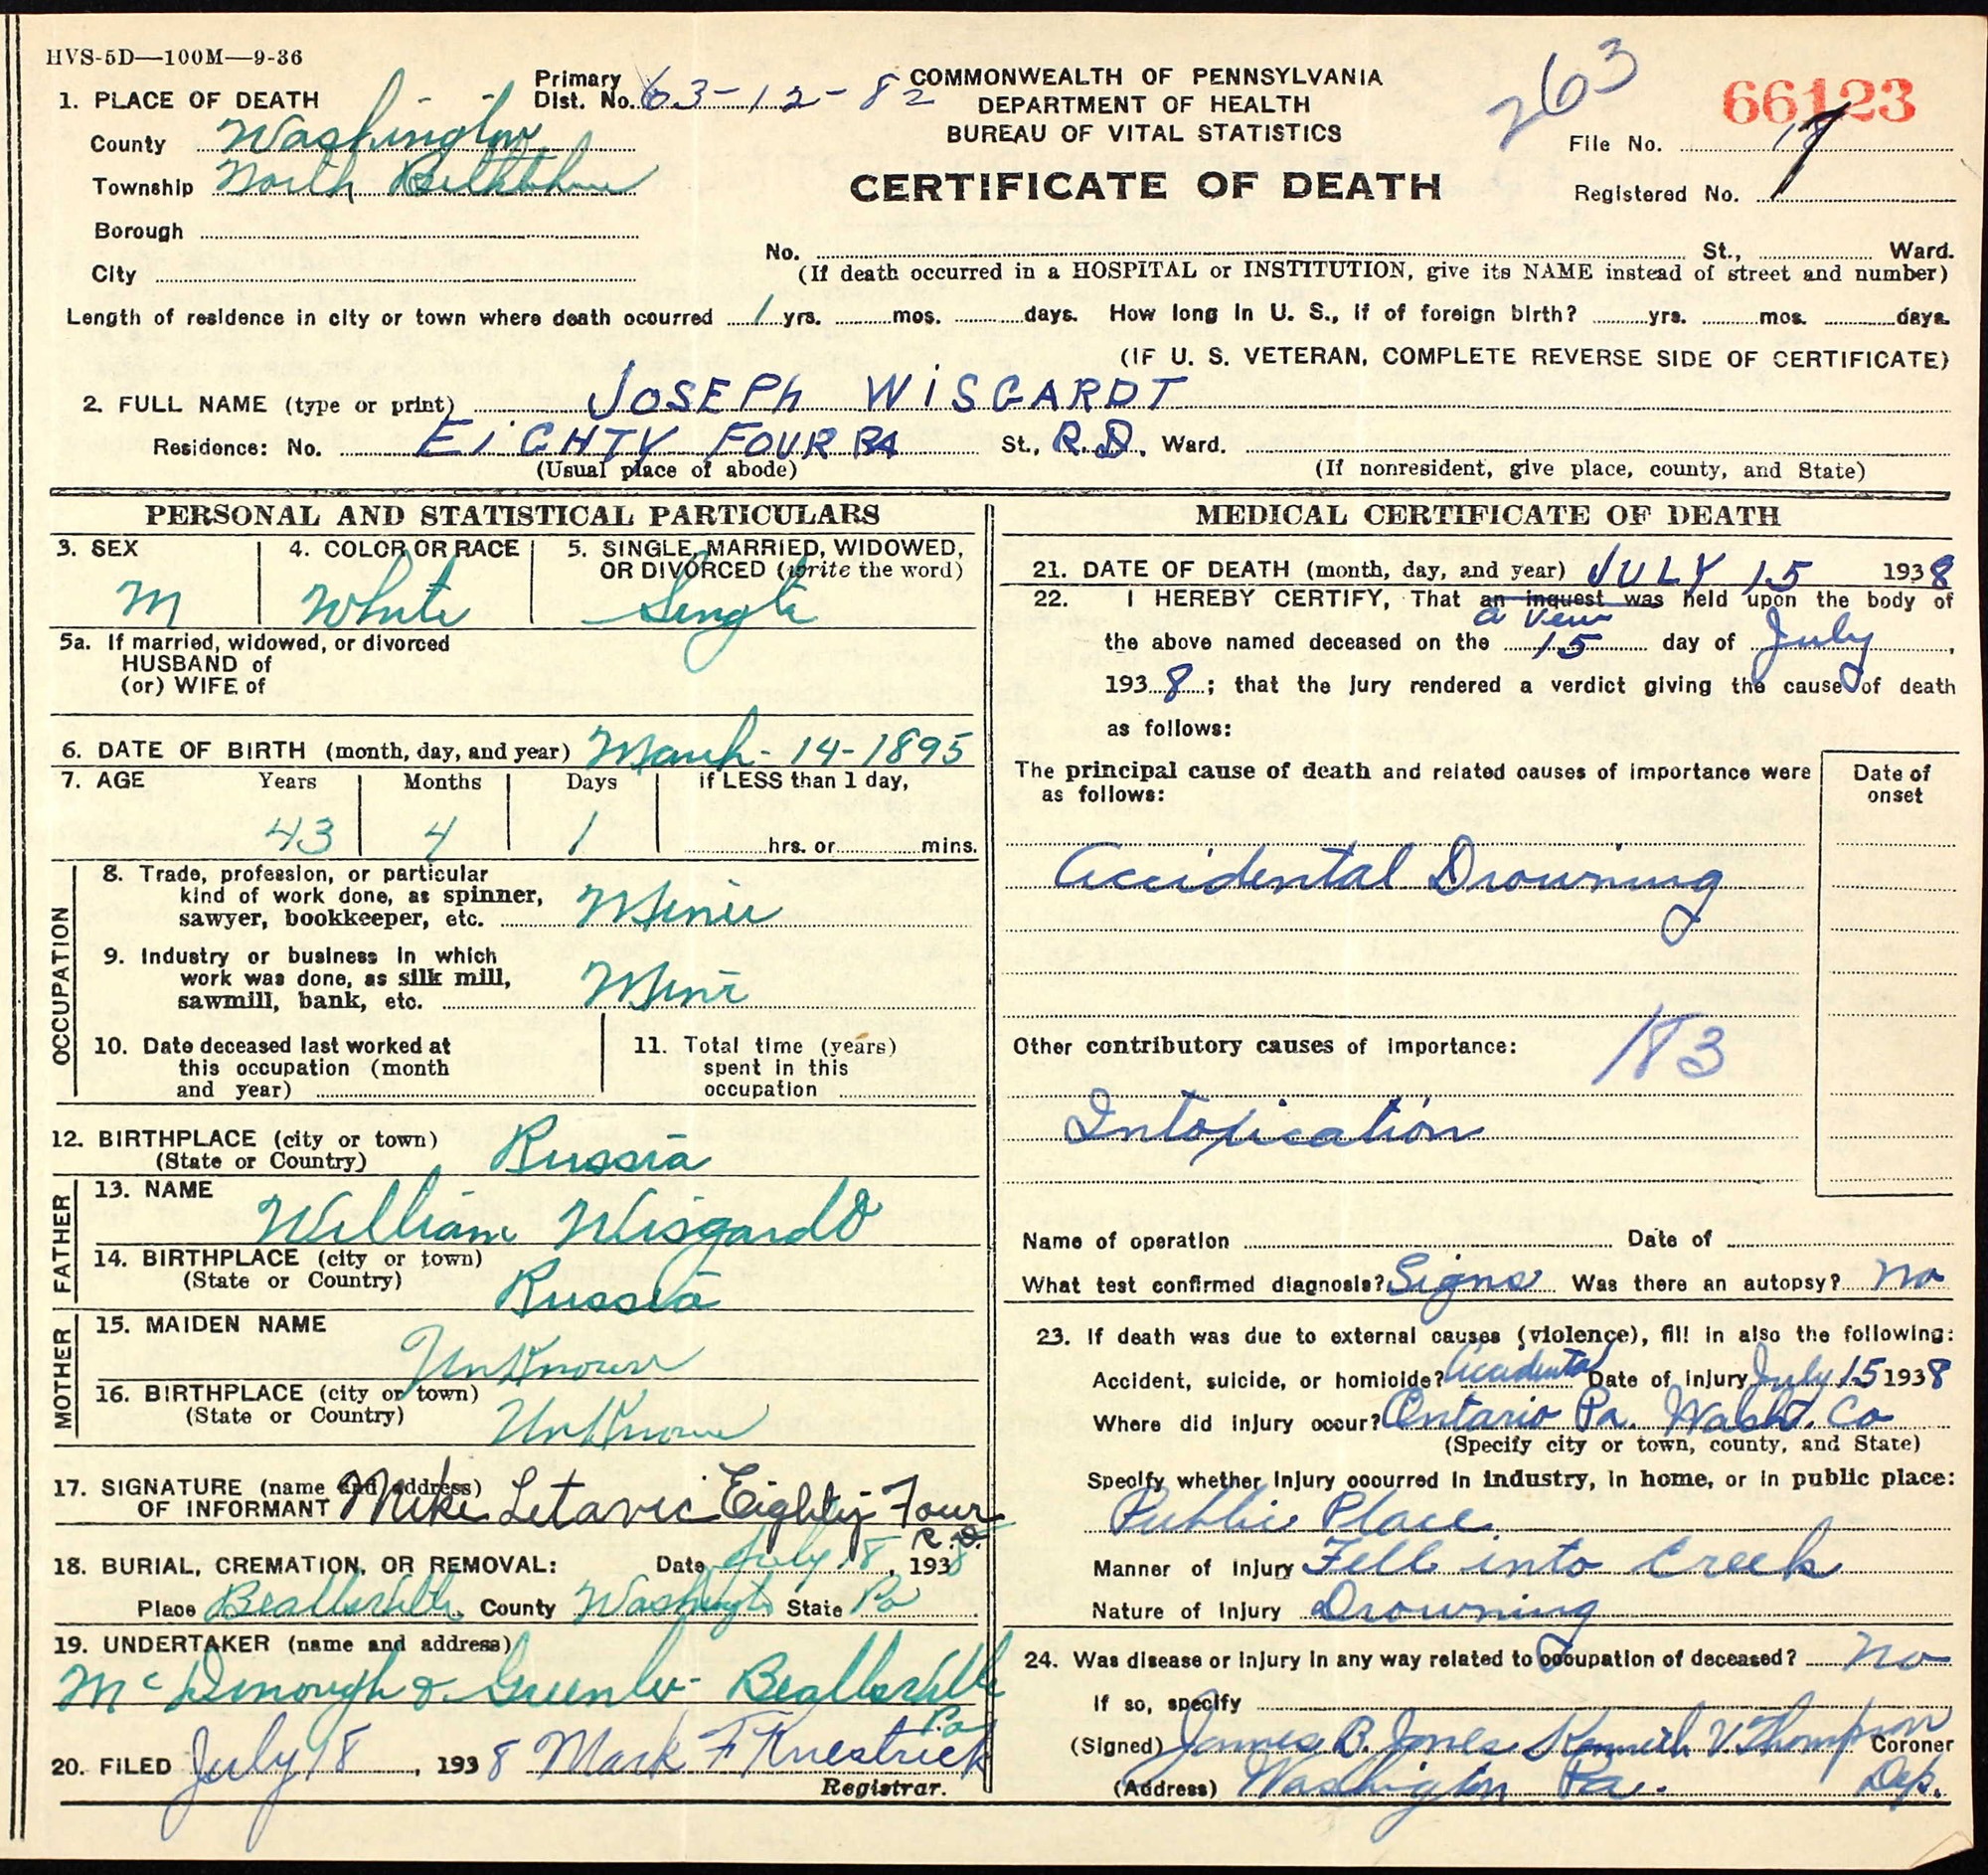 HVS-5D—100M—9-36
Primary Dist. No. 63-12-82
COMMONWEALTH OF PENNSYLVANIA
DEPARTMENT OF HEALTH
BUREAU OF VITAL STATISTICS
CERTIFICATE OF DEATH
263
66123
File No.
Registered No.
1. PLACE OF DEATH
County Washington
Township North
Borough
City
No. St., Ward.
(If death occurred in a HOSPITAL or INSTITUTION, give its NAME instead of street and number)
Length of residence in city or town where death occurred 1 yrs. mos. days. How long in U. S., if of foreign birth? yrs. mos. days.
(IF U. S. VETERAN, COMPLETE REVERSE SIDE OF CERTIFICATE)
2. FULL NAME (type or print) JOSEPH WISGARDT
Residence: No. EIGHTY FOUR PA St., R.D. Ward.
(Usual place of abode) (If nonresident, give place, county, and State)
PERSONAL AND STATISTICAL PARTICULARS
3. SEX
M
4. COLOR OR RACE
White
5. SINGLE, MARRIED, WIDOWED,
OR DIVORCED (write the word)
Single
5a. If married, widowed, or divorced
HUSBAND of
(or) WIFE of
6. DATE OF BIRTH (month, day, and year) March - 14 - 1895
7. AGE Years Months Days if LESS than 1 day,
43 4 1 hrs. or mins.
OCCUPATION
8. Trade, profession, or particular
kind of work done, as spinner,
sawyer, bookkeeper, etc. Miner
9. Industry or business in which
work was done, as silk mill,
sawmill, bank, etc. Mine
10. Date deceased last worked at
this occupation (month
and year)
11. Total time (years)
spent in this
occupation
12. BIRTHPLACE (city or town)
(State or Country) Russia
FATHER
13. NAME William Wisgardt
14. BIRTHPLACE (city or town)
(State or Country) Russia
MOTHER
15. MAIDEN NAME
UnKnown
16. BIRTHPLACE (city or town)
(State or Country) UnKnown
17. SIGNATURE (name and address)
OF INFORMANT Mike Letavic Eighty Four
R.D.
18. BURIAL, CREMATION, OR REMOVAL: Date July 18, 1938
Place Beallsville, County Washington State Pa
19. UNDERTAKER (name and address)
McDonough & Greenlee - Beallsville
Pa
20. FILED July 18, 1938 Mark F Knestrick
Registrar.
MEDICAL CERTIFICATE OF DEATH
21. DATE OF DEATH (month, day, and year) JULY 15 1938
22. I HEREBY CERTIFY, That an inquest was held upon the body of
a View
the above named deceased on the 15 day of July,
1938; that the jury rendered a verdict giving the cause of death
as follows:
The principal cause of death and related causes of importance were
as follows:
Date of
onset
Accidental Drowning
Other contributory causes of importance:
183
Intoxication
Name of operation Date of
What test confirmed diagnosis? Signs Was there an autopsy? no
23. If death was due to external causes (violence), fill in also the following:
Accident, suicide, or homicide? Accidental Date of injury July 15 1938
Where did injury occur? Ontario Pa. Washt. Co
(Specify city or town, county, and State)
Specify whether injury occurred in industry, in home, or in public place:
Public Place.
Manner of Injury Fell into Creek
Nature of Injury Drowning
24. Was disease or injury in any way related to occupation of deceased? no
If so, specify
(Signed) James B. Jones Kenneth V. Thompson Coroner
(Address) Washington Pa. Dep.